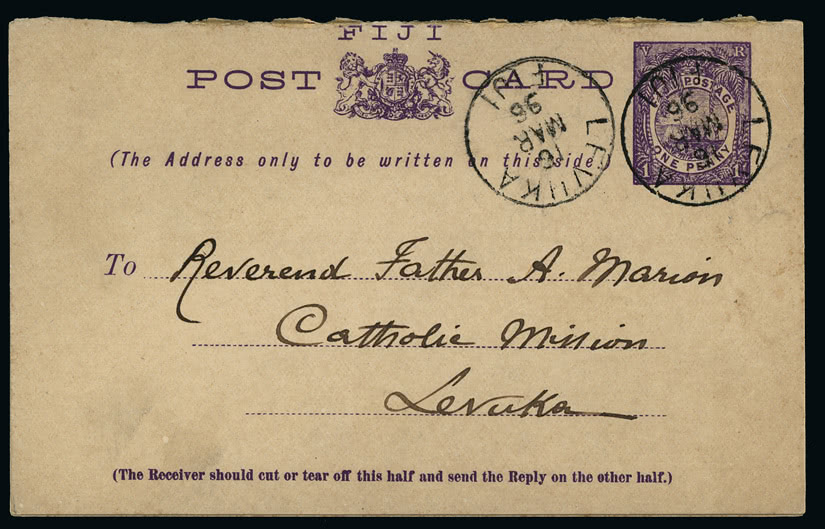 FIJI
POST CARD
(The Address only to be written on this side)
To Reverend Father A. Marion
Catholic Mission
Levuka
(The Receiver should cut or tear off this half and send the Reply on the other half.)
V R
POSTAGE
ONE PENNY
1 1
LEVUKA
MAR
96
FIJI
LEVUKA
MAR
96
FIJI